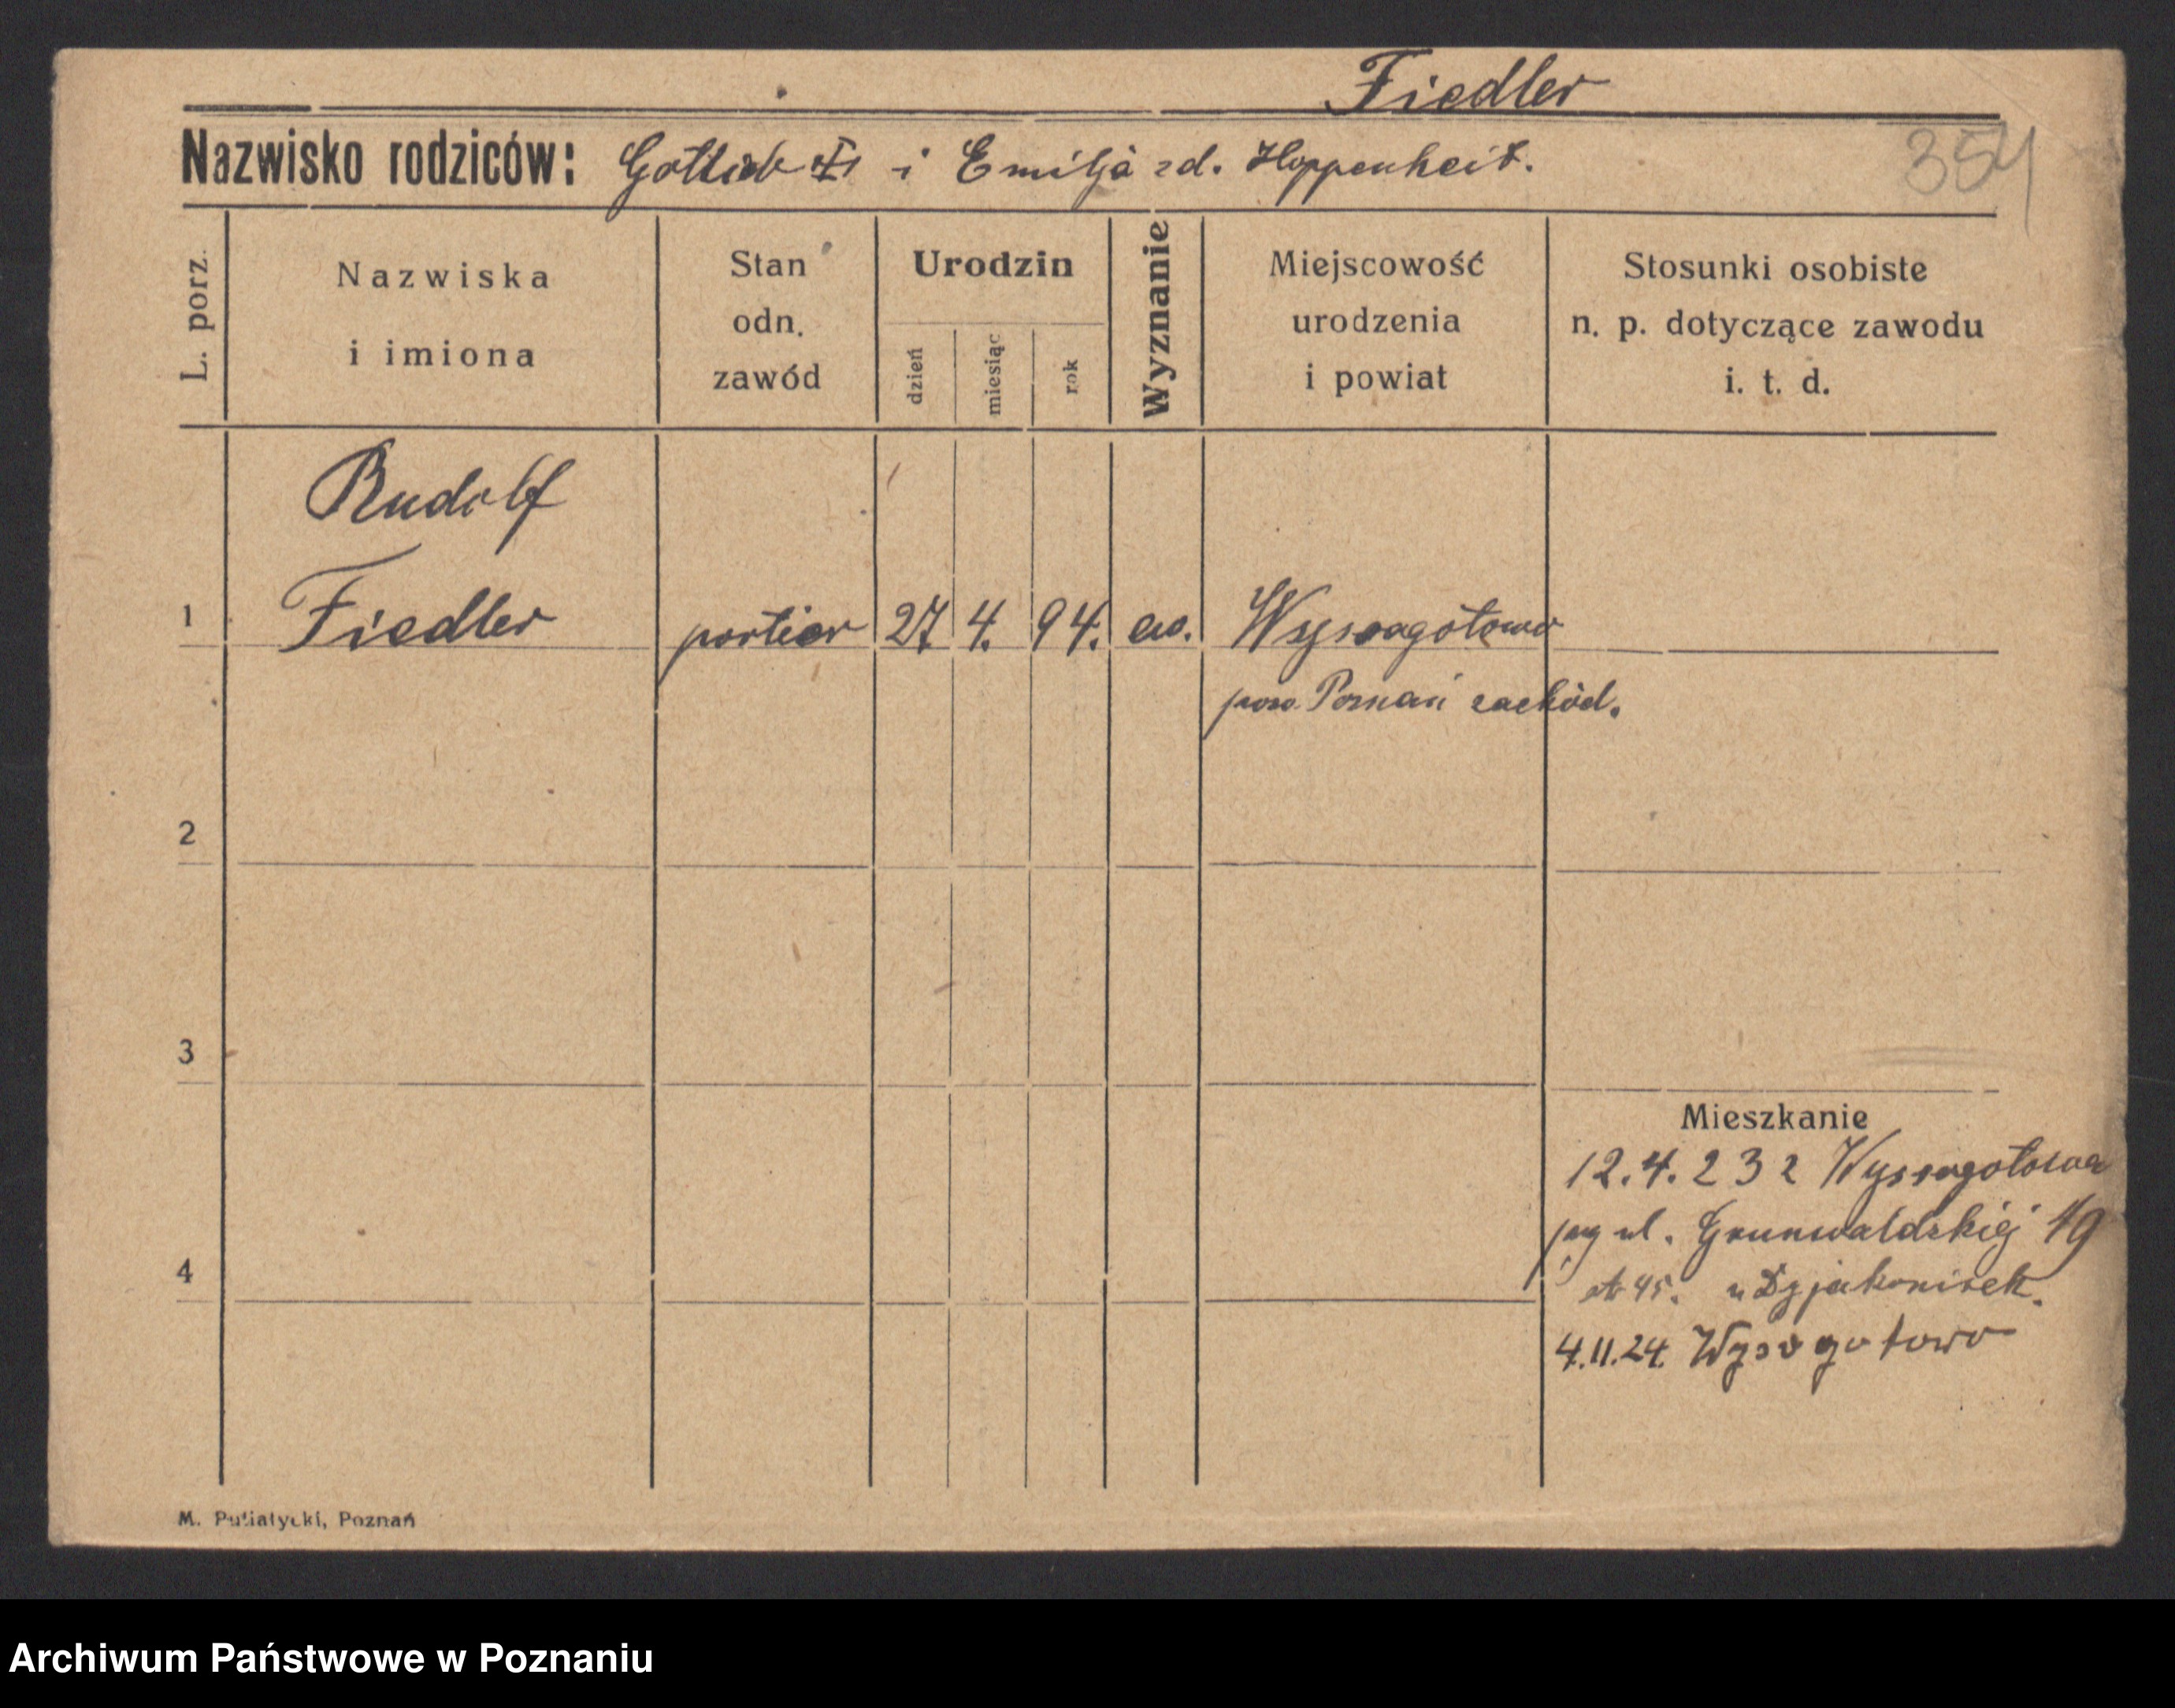 Fiedler
Nazwisko rodziców: Gottlieb i Emilja zd. Hoppenheit.
354
L. porz.
Nazwiska
i imiona
Stan
odn.
zawód
Urodzin
dzień
miesiąc
rok
Wyznanie
Miejscowość
urodzenia
i powiat
Stosunki osobiste
n. p. dotyczące zawodu
i. t. d.
Rudolf
1 Fiedler portier 27 4. 94. ew. Wyssogotowo
pow. Poznań zachód.
2
3
Mieszkanie
12.4.23 z Wyssogotowa
przy ul. Grunwaldskiej 49
4
45. u Dyjakonisek.
4.11.24. Wysogotowo
M. Putiatycki, Poznań
Archiwum Państwowe w Poznaniu